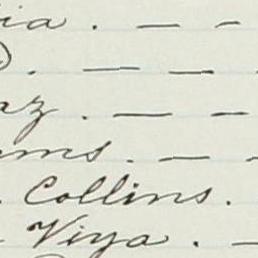 ia . — -
. — —
az . — -
ms . — -
. Collins .
Viya . —